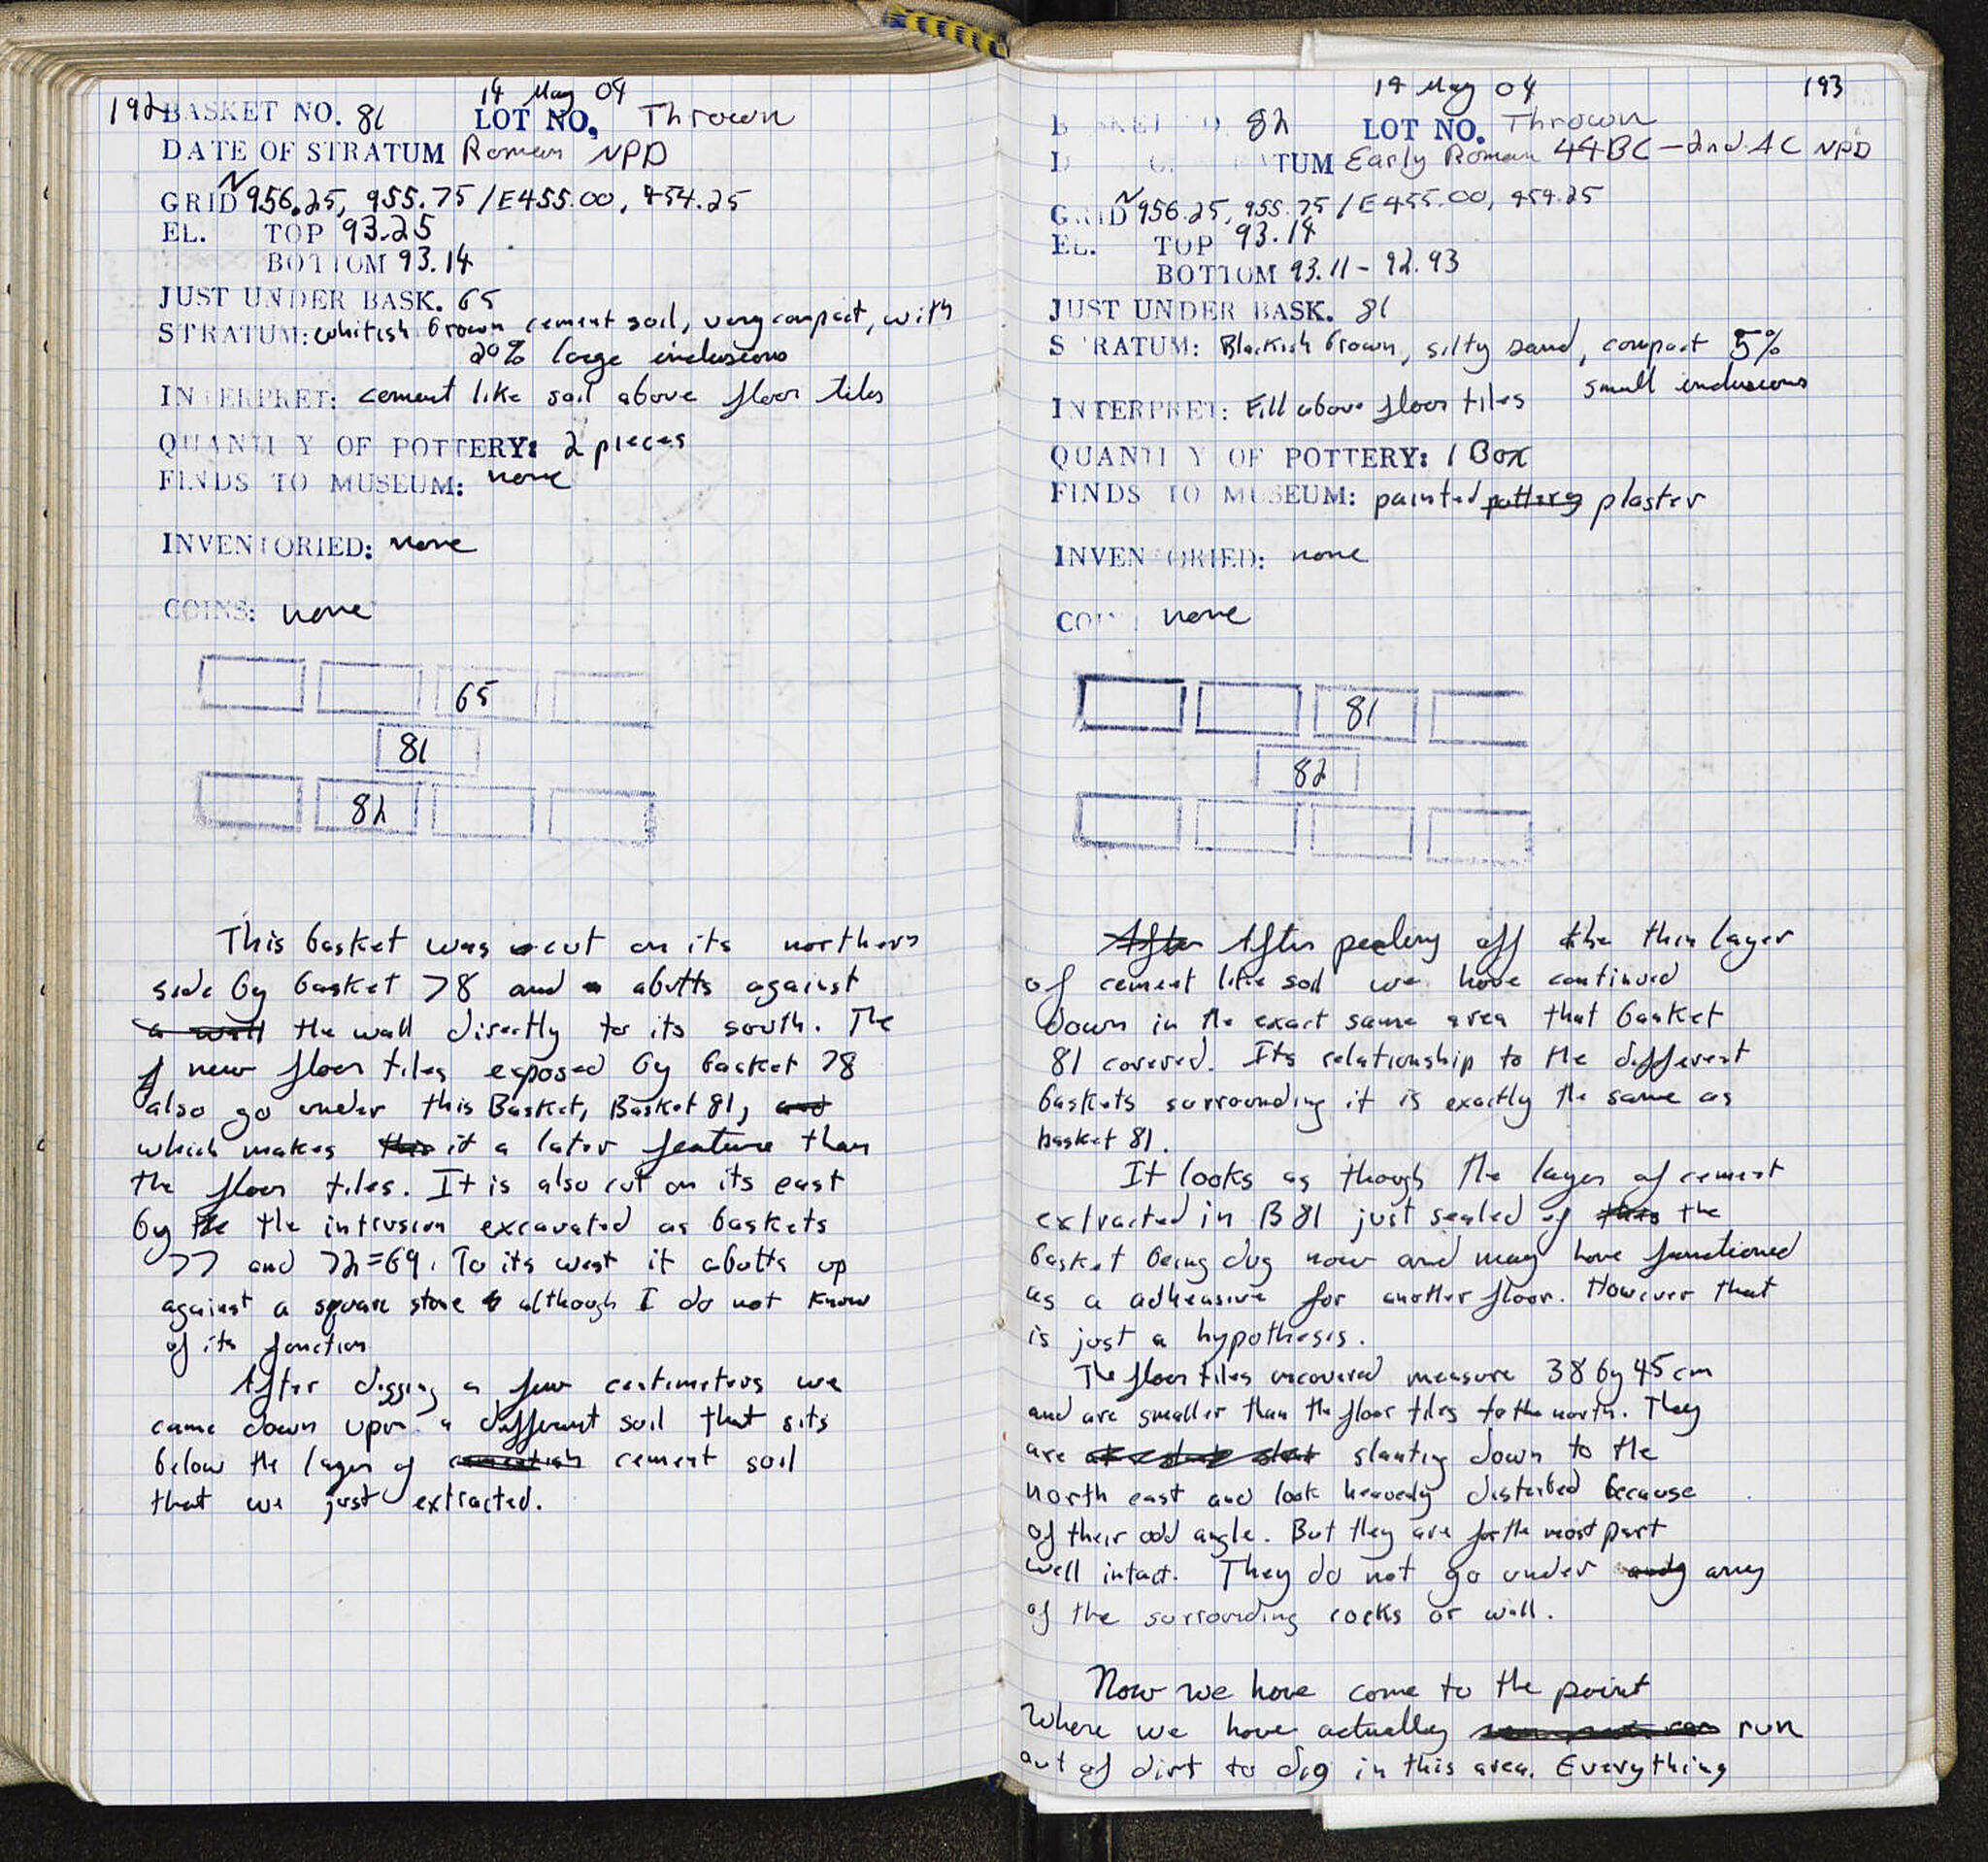 192
14 May 04
BASKET NO. 81 LOT NO. Thrown
DATE OF STRATUM Roman NPD
GRID N956.25, 955.75 / E455.00, 454.25
EL. TOP 93.25
BOTTOM 93.14
JUST UNDER BASK. 65
STRATUM: whitish brown cement soil, very compact, with
20% large inclusions
INTERPRET: cement like soil above floor tiles
QUANTITY OF POTTERY: 2 pieces
FINDS TO MUSEUM: none
INVENTORIED: none
COINS: none
65
81
82
This basket was cut on its northern
side by basket 78 and abutts against
a wall the wall directly to its south. The
new floor tiles exposed by basket 78
also go under this Basket, Basket 81, and
which makes this it a later feature than
the floor tiles. It is also cut on its east
by the the intrusion excavated as baskets
77 and 72=69. To its west it abutts up
against a square stone although I do not know
of its fonction
After digging a few centimeters we
came down upon a different soil that sits
below the layer of cement soil
that we just extracted.
193
14 May 04
BASKET NO. 82 LOT NO. Thrown
DATE OF STRATUM Early Roman 44BC - 2nd AC NPD
GRID N956.25, 955.75 / E455.00, 454.25
EL. TOP 93.14
BOTTOM 93.11 - 92.93
JUST UNDER BASK. 81
STRATUM: Blackish brown, silty sand, compact 5%
small inclusions
INTERPRET: Fill above floor tiles
QUANTITY OF POTTERY: 1 Box
FINDS TO MUSEUM: painted pottery plaster
INVENTORIED: none
COINS: none
81
82
After After peeleng off the thin layer
of cement like soil we have continued
down in the exact same area that basket
81 covered. Its relationship to the different
baskets surrounding it is exactly the same as
basket 81.
It looks as though the layer of cement
extracted in B 81 just sealed of this the
basket being dug now and may have functioned
as a adheasive for another floor. However that
is just a hypothesis.
The floor tiles uncovered measure 38 by 45 cm
and are smaller than the floor tiles to the north. They
are slanting down to the
north east and look heavedly disterbed because
of their odd angle. But they are for the most part
well intact. They do not go under any
of the surrounding rocks or wall.
Now we have come to the point
Where we have actually run
out of dirt to dig in this area. Everything